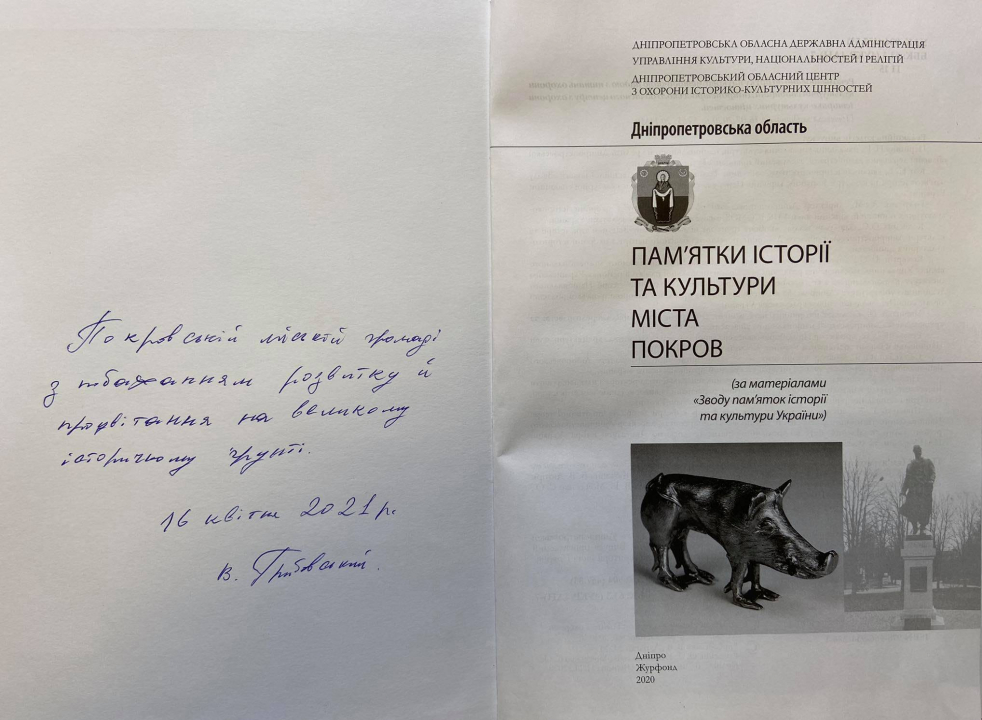 Покровській міській громаді
з побажанням розвитку й
процвітання на великому
історичному ґрунті.
16 квітня 2021 р.
В. Грибовський
ДНІПРОПЕТРОВСЬКА ОБЛАСНА ДЕРЖАВНА АДМІНІСТРАЦІЯ
УПРАВЛІННЯ КУЛЬТУРИ, НАЦІОНАЛЬНОСТЕЙ І РЕЛІГІЙ
ДНІПРОПЕТРОВСЬКИЙ ОБЛАСНИЙ ЦЕНТР
З ОХОРОНИ ІСТОРИКО-КУЛЬТУРНИХ ЦІННОСТЕЙ
Дніпропетровська область
ПАМ’ЯТКИ ІСТОРІЇ
ТА КУЛЬТУРИ
МІСТА
ПОКРОВ
(за матеріалами
«Зводу пам’яток історії
та культури України»)
Дніпро
Журфонд
2020